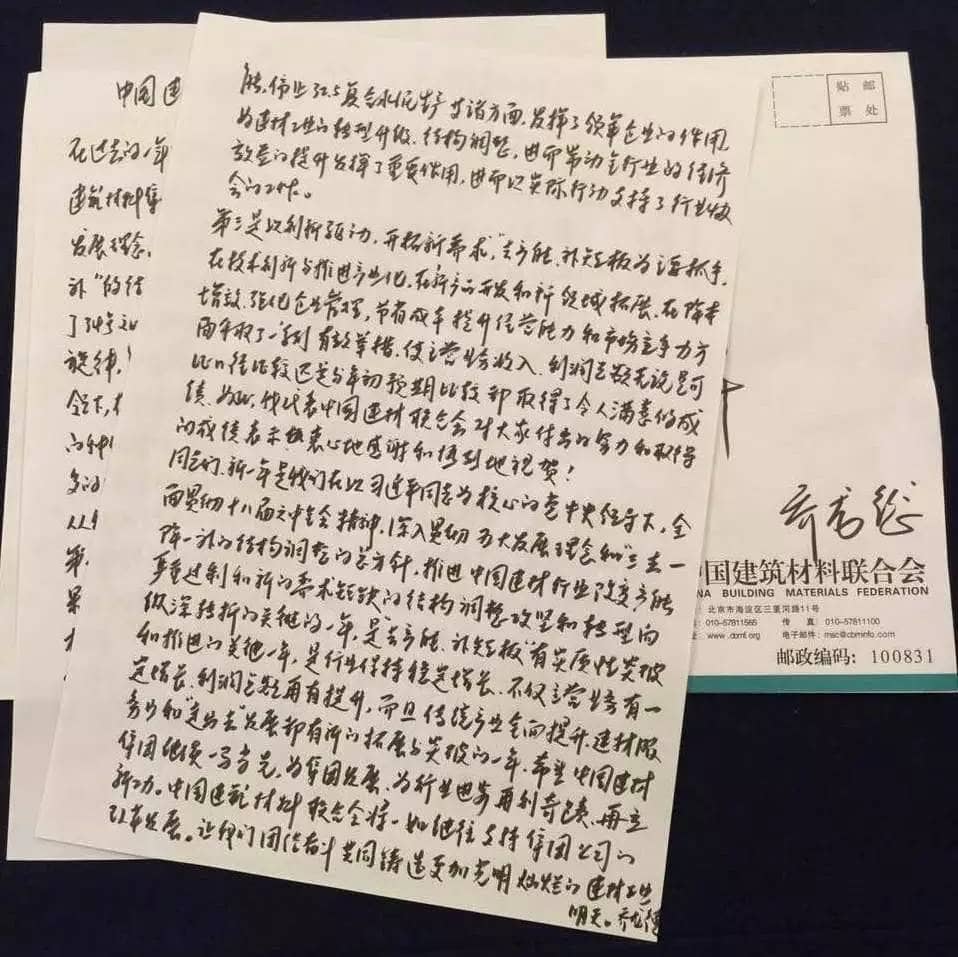 中国建
在过去的一年
建筑材料集
发展理念,
补"的结
了34号文
旋律,
领下,
的
多的
从
第
能、停止32.5复合水泥等方面,发挥了领军企业的作用,
为建材工业的转型升级、结构调整,进而带动全行业的经济
效益的提升发挥了重要作用,进而以实际行动支持了行业协
会的工作。
第三是以创新驱动,开拓新需求,"去产能、补短板"为主要抓手,
在技术创新与推进产业化、在新产品开发和新领域拓展、在降本
增效、强化企业管理,节省成本提升经营能力和市场竞争力方
面采取了一系列有效举措,使主营业务收入、利润总额无论是同
比口径比较还是与年初预期比较都取得了令人满意的成
绩。为此,我代表中国建材联合会对大家付出的努力和取得
的成绩表示衷心地感谢和热烈地祝贺!
同志们,新一年是我们在以习近平同志为核心的党中央领导下,全
面贯彻十八届六中全会精神,深入贯彻五大发展理念和"三去一
降一补"的结构调整的总方针,推进中国建材行业改变产能
严重过剩和新的需求短缺的结构调整攻坚和转型向
纵深转折的关键的一年,是"去产能、补短板"有实质性突破
和推进的关键一年,是行业保持稳定增长、不仅主营业务有一
定增长、利润总额再有提升,而且传统产业全面提升、建材服
务业和"走出去"发展都有新的拓展与突破的一年。希望中国建材
集团地领一马当先,为集团发展、为行业进步再创奇迹、再立
新功。中国建筑材料联合会将一如既往支持集团公司的
改革发展。让我们团结奋斗共同铸造更加光明灿烂的建材工业
明天。乔龙德
贴 邮
票 处
中国建筑材料联合会
NA BUILDING MATERIALS FEDERATION
北京市海淀区三里河路11号
010-57811565 传 真:010-57811100
www. .org 电子邮件:msc@cbminfo.com
邮政编码:100831